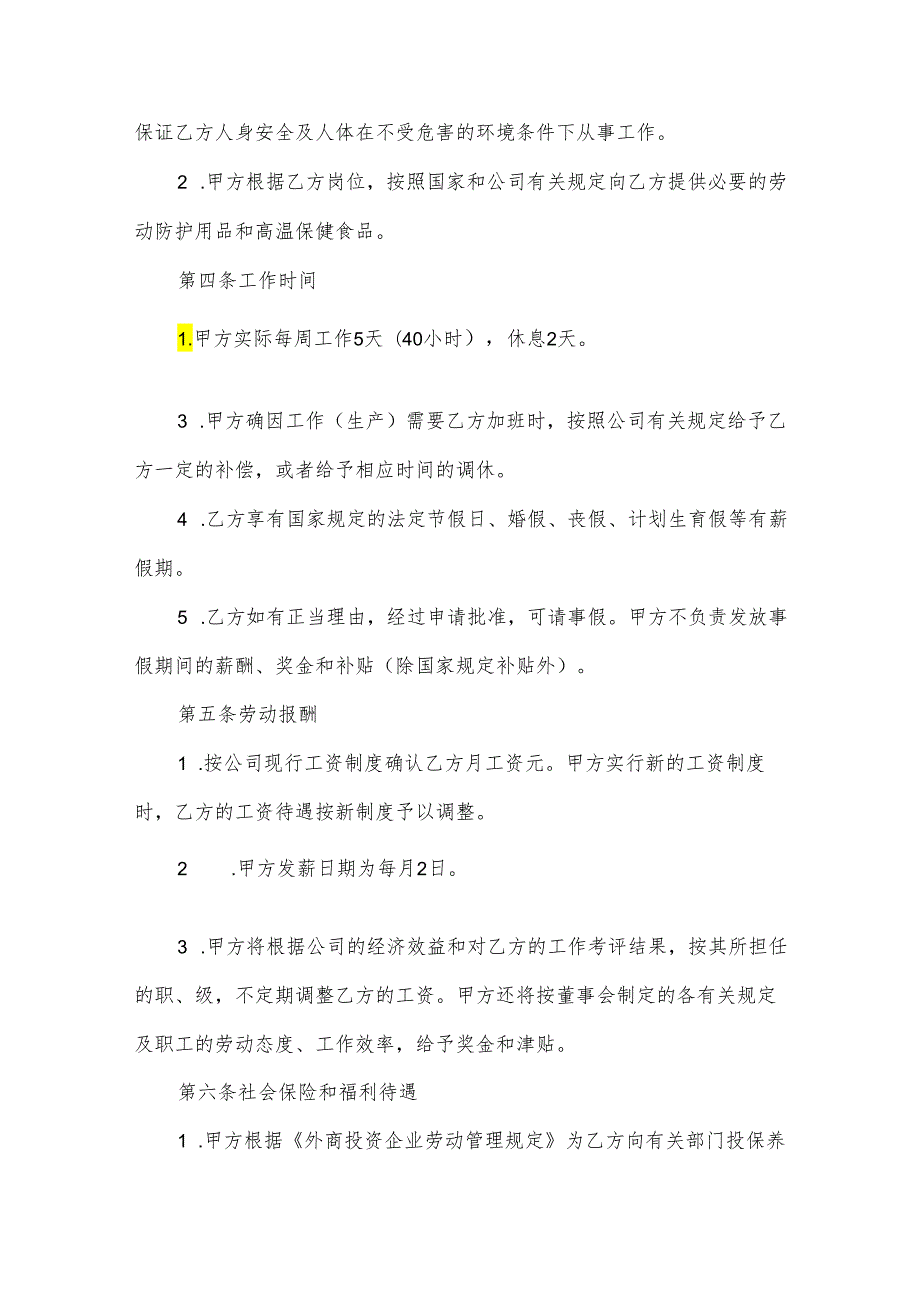 保证乙方人身安全及人体在不受危害的环境条件下从事工作。
2 .甲方根据乙方岗位，按照国家和公司有关规定向乙方提供必要的劳
动防护用品和高温保健食品。
第四条工作时间
1.甲方实际每周工作5天 (40小时），休息2天。
3 .甲方确因工作（生产）需要乙方加班时，按照公司有关规定给予乙
方一定的补偿，或者给予相应时间的调休。
4 .乙方享有国家规定的法定节假日、婚假、丧假、计划生育假等有薪
假期。
5 .乙方如有正当理由，经过申请批准，可请事假。甲方不负责发放事
假期间的薪酬、奖金和补贴（除国家规定补贴外）。
第五条劳动报酬
1 .按公司现行工资制度确认乙方月工资元。甲方实行新的工资制度
时，乙方的工资待遇按新制度予以调整。
2 .甲方发薪日期为每月2日。
3 .甲方将根据公司的经济效益和对乙方的工作考评结果，按其所担任
的职、级，不定期调整乙方的工资。甲方还将按董事会制定的各有关规定
及职工的劳动态度、工作效率，给予奖金和津贴。
第六条社会保险和福利待遇
1 .甲方根据《外商投资企业劳动管理规定》为乙方向有关部门投保养